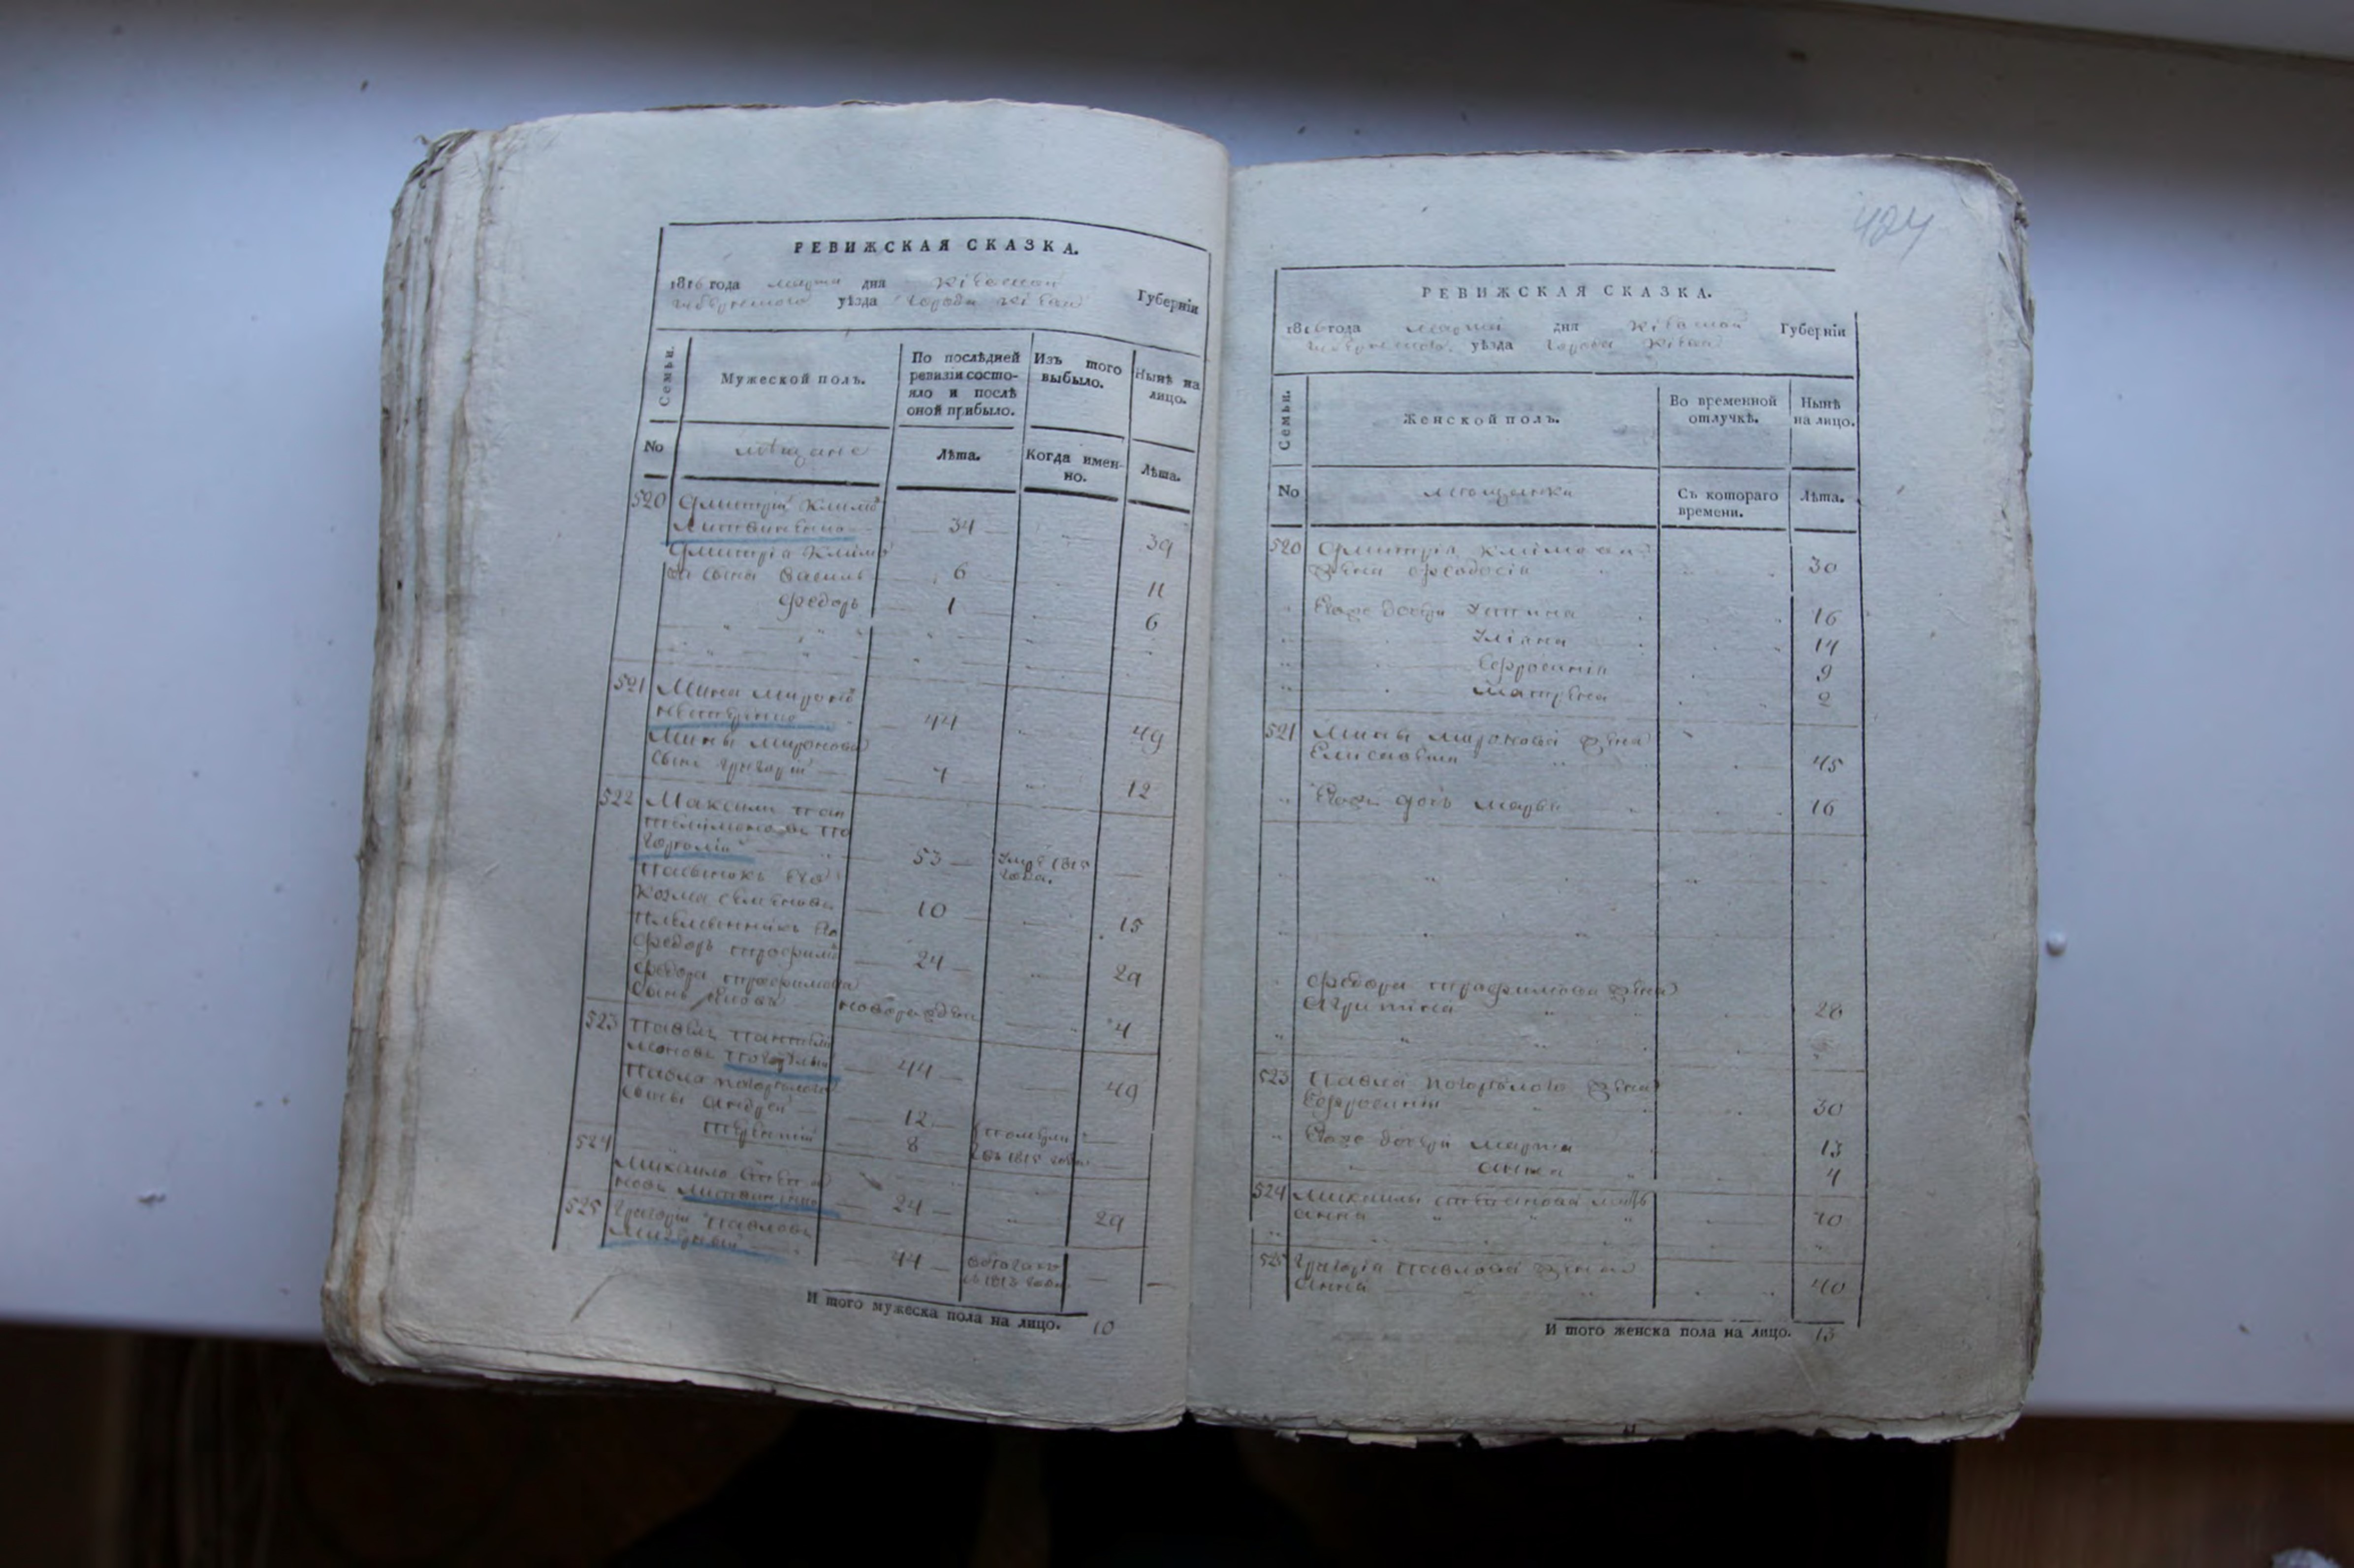 РЕВИЖСКАЯ СКАЗКА.
1816 года марта дня Кіевской Губерніи
уѣзда города Кіева
Семьи. Мужеской полъ. По послѣдней ревизіи состояло и послѣ оной прибыло. Изъ того выбыло. Нынѣ на лицо.
No мѣщане Лѣта. Когда именно. Лѣта.
520 Дмитрій Климовъ
Литвиненко 34 39
Дмитрія Климо
ва сына Василь 6 11
Федоръ 1 6
521 Мина Мироновъ
44 49
Мины Миронова
сынъ Григорій 7 12
522 Максимъ Пан
телимоновъ По
горѣлій 53 умре 1815 года.
Пасынокъ его
Козма Семеновъ 10 15
Племянникъ его
Федоръ Трофимовъ 24 29
Федора Трофимова
сынъ новорожденъ 4
523 Павелъ Пантели
моновъ Погорѣлый 44 49
Павла Погорѣлого
сыны Андрей 12 померли
Терентій 8 въ 1815 годе
524 Михайло Степа
новъ Литвиненко 24 29
525 Григорій Павловъ
44 въ 1813 годе
И того мужеска пола на лицо. 10
424
РЕВИЖСКАЯ СКАЗКА.
1816 года марта дня Кіевской Губерніи
уѣзда города Кіева
Семьи. Женской полъ. Во временной отлучкѣ. Нынѣ на лицо.
No мещанки Съ котораго времени. Лѣта.
520 Дмитрія Климова
жена Феодосія 30
Его же дочери Устина 16
Уліана 14
Ефросинія 9
Матрена 2
521 Мины Миронова жена
Елисавета 45
Его дочь Марья 16
Федора Трофимова жена
Агрипина 28
523 Павла Погорѣлого жена
Ефросинія 30
Его же дочери Марта 13
Анна 4
524 Михайлы Степанова мать
Анна 70
525 Григорія Павлова жена
Анна 40
И того женска пола на лицо. 13